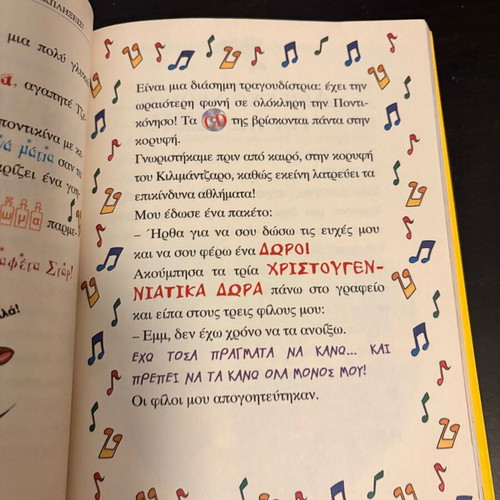 ΚΠΛΗΞΕΙΣ!
μια πολύ
αγαπητέ
ποντικίνα με
μάτια σαν
ρίζει ένα
ωμα παρμε-
Σταρ!
Είναι μια διάσημη τραγουδίστρια: έχει την
ωραιότερη φωνή σε ολόκληρη την Ποντι-
κόνησο! Τα CD της βρίσκονται πάντα στην
κορυφή.
Γνωριστήκαμε πριν από καιρό, στην κορυφή
του Κιλιμάντζαρο, καθώς εκείνη λατρεύει τα
επικίνδυνα αθλήματα!
Μου έδωσε ένα πακέτο:
– Ήρθα για να σου δώσω τις ευχές μου
και να σου φέρω ένα ΔΩΡΟ!
Ακούμπησα τα τρία ΧΡΙΣΤΟΥΓΕΝ-
ΝΙΑΤΙΚΑ ΔΩΡΑ πάνω στο γραφείο
και είπα στους τρεις φίλους μου:
– Εμμ, δεν έχω χρόνο να τα ανοίξω.
ΕΧΩ ΤΟΣΑ ΠΡΑΓΜΑΤΑ ΝΑ ΚΑΝΩ... ΚΑΙ
ΠΡΕΠΕΙ ΝΑ ΤΑ ΚΑΝΩ ΟΛΑ ΜΟΝΟΣ ΜΟΥ!
Οι φίλοι μου απογοητεύτηκαν.